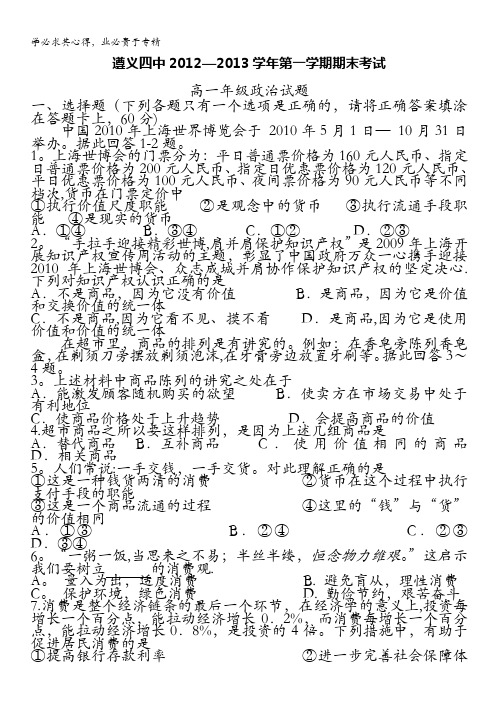 学必求其心得，业必贵于专精
遵义四中2012—2013学年第一学期期末考试
高一年级政治试题
一、选择题（下列各题只有一个选项是正确的，请将正确答案填涂
在答题卡上，60分）
中国2010年上海世界博览会于 2010年5月1日— 10月31日
举办。据此回答1-2题。
1。上海世博会的门票分为：平日普通票价格为160元人民币、指定
日普通票价格为200元人民币、指定日优惠票价格为120元人民币、
平日优惠票价格为100元人民币、夜间票价格为90元人民币等不同
档次,货币在门票定价中
①执行价值尺度职能 ②是观念中的货币 ③执行流通手段职
能 ④是现实的货币
A．①④ B．③④ C．①② D．②③
2。 “手拉手迎接精彩世博,肩并肩保护知识产权”是2009年上海开
展知识产权宣传周活动的主题，彰显了中国政府万众一心携手迎接
2010年上海博会、众志成城并肩协作保护知识产权的坚定决心.
下列对知识产权认识正确的是
A．不是商品，因为它没有价值 B．是商品，因为它是价值
和交换价值的统一体
C．不是商品,因为它看不见、摸不着 D．是商品,因为它是使用
价值和价值的统一体
在超市里，商品的排列是有讲究的。例如：在香皂旁陈列香皂
盒,在剃须刀旁摆放剃须泡沫,在牙膏旁边放置牙刷等。据此回答3～
4题。
3。上述材料中商品陈列的讲究之处在于
A．能激发顾客随机购买的欲望 B．使卖方在市场交易中处于
有利地位
C．使商品价格处于上升趋势 D．会提高商品的价值
4.超市商品之所以要这样排列，是因为上述几组商品是
A．替代商品 B．互补商品 C．使用价值相同的商品
D．相关商品
5。人们常说:一手交钱，一手交货。对此理解正确的是
①这是一种钱货两清的消费 ②货币在这个过程中执行
支付手段的职能
③这是一个商品流通的过程 ④这里的“钱”与“货”
的价值相同
A．①③ B．②④ C．②③
D．③④
6。 “一粥一饭,当思来之不易；半丝半缕，恒念物力维艰。”这启示
我们要树立______的消费观.
A。 量入为出，适度消费 B. 避免盲从，理性消费
C。 保护环境，绿色消费 D. 勤俭节约，艰苦奋斗
7.消费是整个经济链条的最后一个环节，在经济学的意义上,投资每
增长一个百分点，能拉动经济增长0．2%，而消费每增长一个百分
点，能拉动经济增长0．8%，是投资的4倍。下列措施中，有助于
促进居民消费的是
①提高银行存款利率 ②进一步完善社会保障体